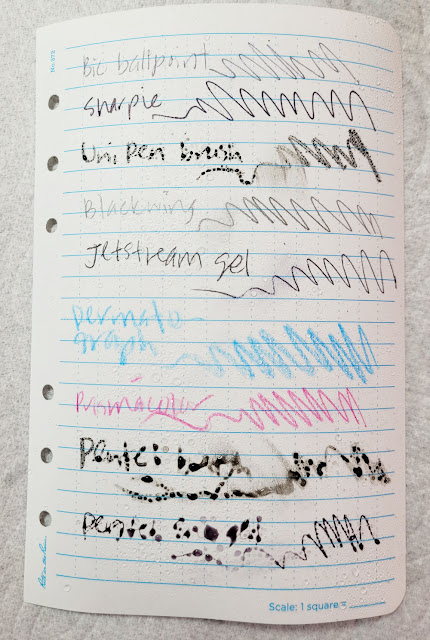 No.372
Bic ballpoint
Sharpie
Uni Pen brush
Blackwing
Jetstream gel
permato-
graph
Prismacolor
pentel
pentel
Rite in the Rain
Scale: 1 square =